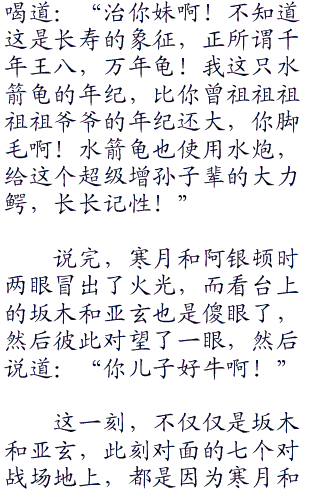 喝道：“治你妹啊！不知道
这是长寿的象征，正所谓千
年王八，万年龟！我这只水
箭龟的年纪，比你曾祖祖祖
祖祖爷爷的年纪还大，你脚
毛啊！水箭龟也使用水炮，
给这个超级增孙子辈的大力
鳄，长长记性！”
说完，寒月和阿银顿时
两眼冒出了火光，而看台上
的坂木和亚玄也是傻眼了，
然后彼此对望了一眼，然后
说道：“你儿子好牛啊！”
这一刻，不仅仅是坂木
和亚玄，此刻对面的七个对
战场地上，都是因为寒月和